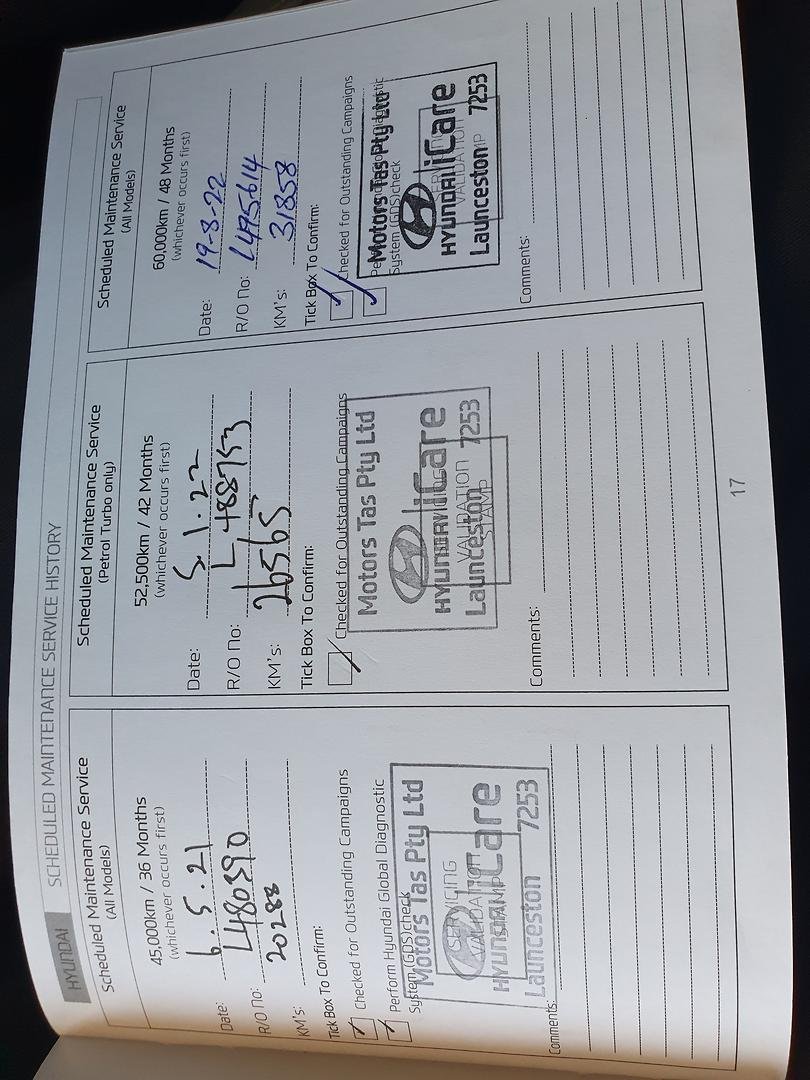 HYUNDAI SCHEDULED MAINTENANCE SERVICE HISTORY
Scheduled Maintenance Service
(All Models)
45,000km / 36 Months
(whichever occurs first)
Date: 6.5.21
R/O No: L480390
KM's: 20288
Tick Box To Confirm:
Checked for Outstanding Campaigns
Perform Hyundai Global Diagnostic
System (GDS) check
Motors Tas Pty Ltd
SERVICING
VALIDATION
STAMP
HYUNDAI iCare
Launceston 7253
Comments:
Scheduled Maintenance Service
(Petrol Turbo only)
52,500km / 42 Months
(whichever occurs first)
Date: 5.1.22
R/O No: L488753
KM's: 26565
Tick Box To Confirm:
Checked for Outstanding Campaigns
Motors Tas Pty Ltd
HYUNDAI iCare
VALIDATION
STAMP
Launceston 7253
Comments:
Scheduled Maintenance Service
(All Models)
60,000km / 48 Months
(whichever occurs first)
Date: 19-8-22
R/O No: L495614
KM's: 31858
Tick Box To Confirm:
Checked for Outstanding Campaigns
System (GDS) check
Motors Tas Pty Ltd
HYUNDAI iCare
VALIDATION
Launceston 7253
Comments:
17